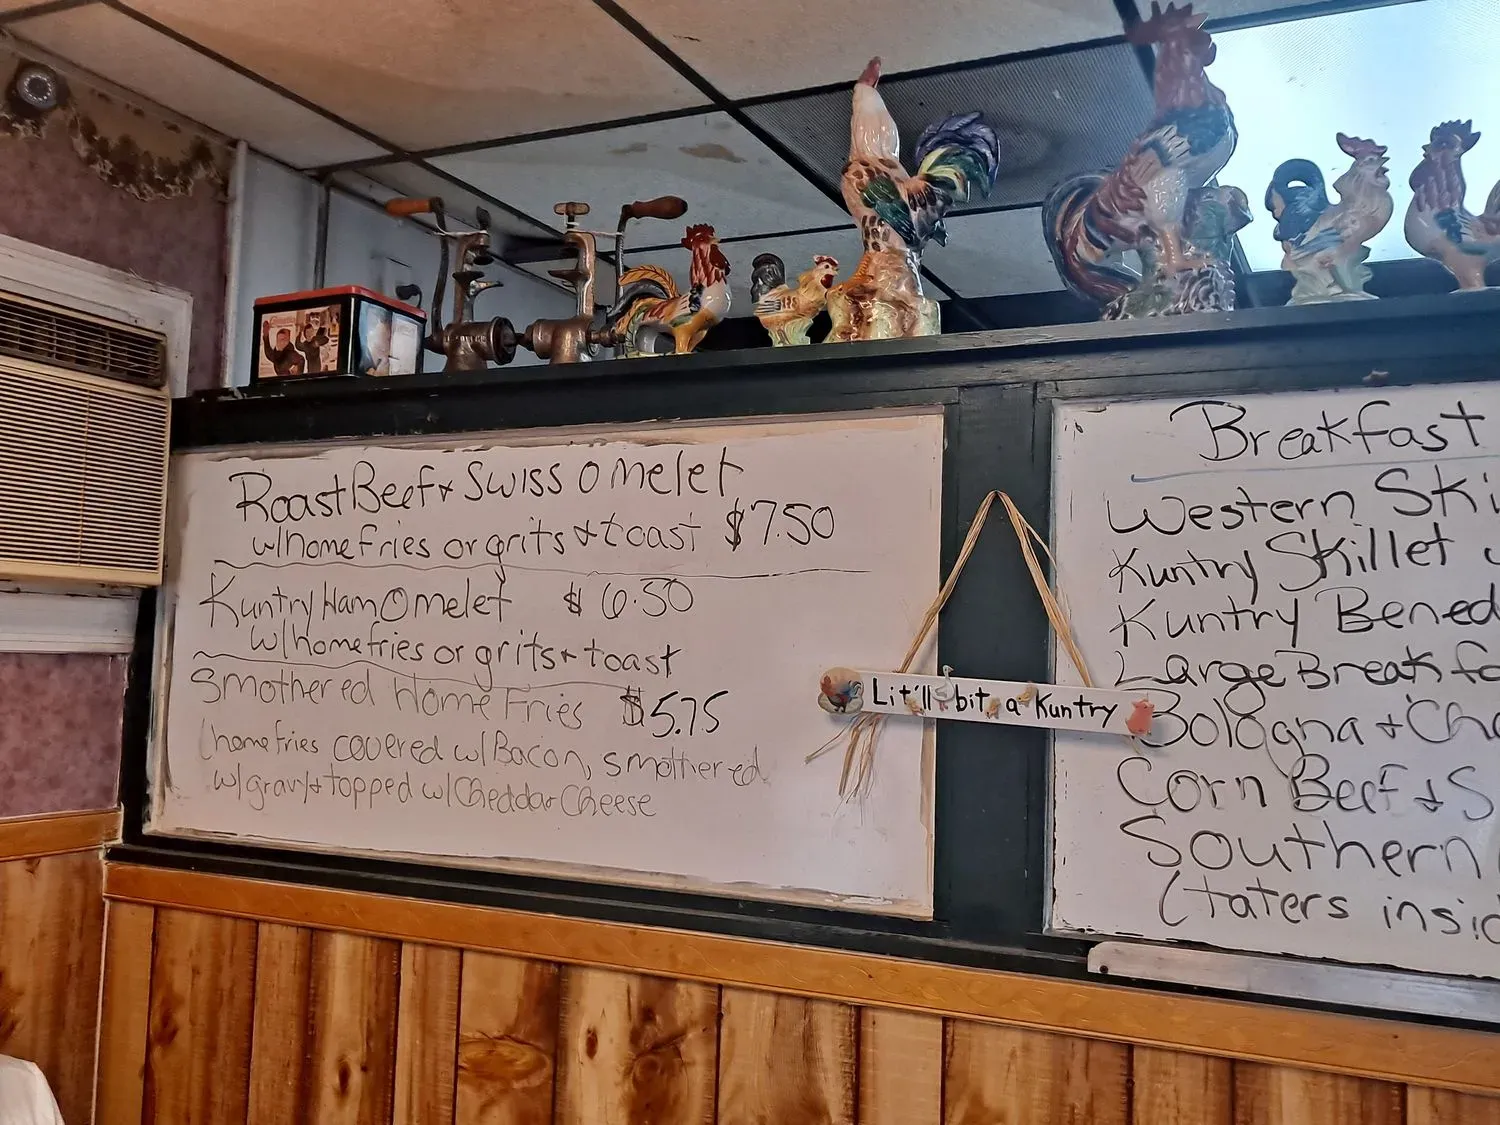 Roast Beef & Swiss Omelet
w/home fries or grits & toast $7.50
Kuntry Ham Omelet $6.50
w/home fries or grits & toast
Smothered Home Fries $5.75
(home fries covered w/ Bacon, smothered
w/gravy & topped w/ Cheddar Cheese
Lit'll bit a Kuntry
Breakfast
Western Ski
Kuntry Skillet
Kuntry Bened
Large Breakfa
Bologna & Che
Corn Beef & S
Southern
(taters insid